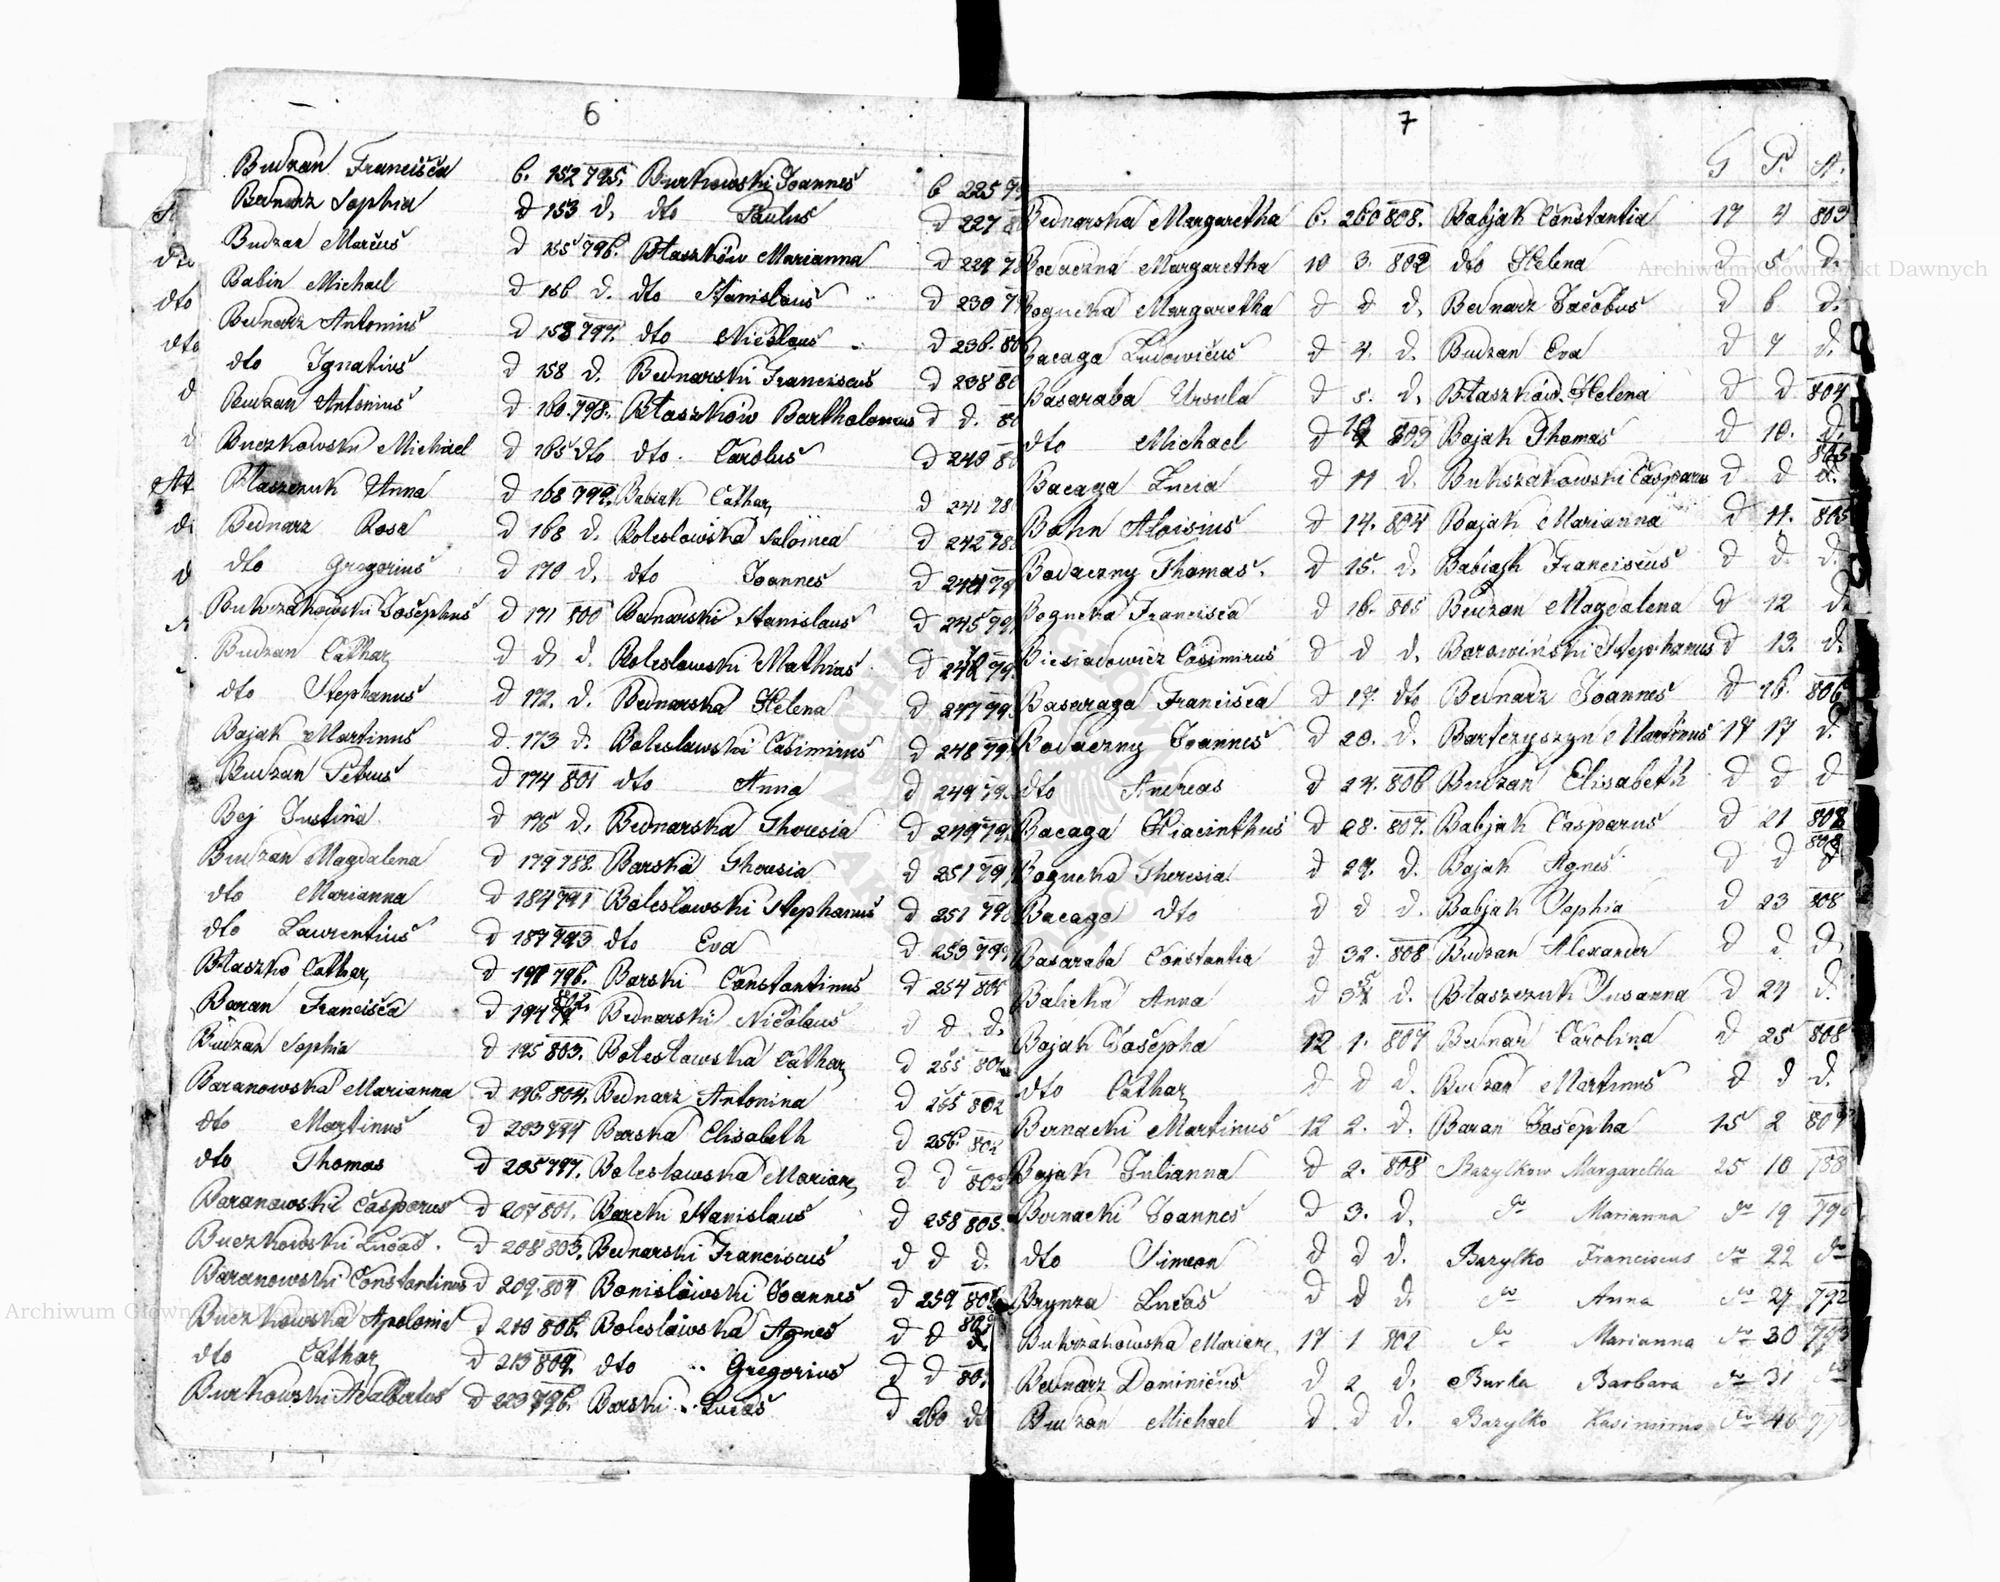 6
Budzan Francisca b. 152 795.
Bednarz Sophia d 153 d.
Budzan Marcus d 155 796.
Babin Michael d 156 d.
Bednarz Antonius d 158 797.
dto Ignatius d 158 d.
Budzan Antonius d 160. 798.
Buczkowski Michael d 165 dto
Błaszczuk Anna d 168 799.
Bednarz Rosa d 168 d.
dto Gregorius d 170 d.
Bukszakowski Josephus d 171 800
Budzan Cathar d d. d.
dto Stephanus d 172. d.
Bajak Martinus d. 173 d.
Budzan Petrus d 174 801
Baj Justina d 175 d.
Budzan Magdalena d 179 788.
dto Marianna d 184 791
dto Laurentius d 187 793
Błaszko Cathar d 191 796.
Baran Francisca d 194 802
Budzan Sophia d 195 803.
Baranowska Marianna d 196. 804.
dto Martinus d 203 794
dto Thomas d 205 797.
Baranowski Casparus d 207 801.
Buczkowski Lucas. d 208 803.
Baranowski Constantinus d 209. 804
Buczkowska Apolonia d 210 806.
dto Cathar d 213 809.
Burkowski Adalbertus d 223 796.
Burkowski Joannes b 225
dto Paulus d 227
Błaszków Marianna d 229
dto Stanislaus d 230
dto Nicolaus d 236.
Bednarski Franciscus d 238
Błaszków Bartholomeus d d.
dto. Carolus d 240
Babiak Cathar d 241
Boleslowska Salomea d 242
dto Joannes d 244
Bednarski Stanislaus d 245
Boleslowski Mathias d 246
Bednarska Helena d 247
Boleslawski Casimirus d 248
dto Anna d 249
Bednarska Thresia d 249
Barska Thresia d 251
Boleslawski Stephanus d 251
dto Eva d 253
Barski Constantinus d 254
Bednarski Nicolaus d d d.
Boleslawska Cathar d 255
Bednarz Antonina d 255 802
Barska Elisabeth d 256. 802
Boleslowska Mariann d d 802
Barcki Stanislaus d 258 805.
Bednarski Franciscus d d d.
Bonislowski Joannes d 259
Boleslawska Agnes d d
dto Gregorius d d
Barski Lucas d 260 d.
7
G P. A.
Bednarska Margaretha 6. 260 808.
Bodaczna Margaretha 10 3. 802
Bogucka Margaretha d d d.
Bacaga Ludowicus d 4. d.
Basaraba Ursula d 5. d.
dto Michael d 803
Bacaga Lucia d 11 d.
Bahn Aloisius d 14. 804
Bodaczny Thomas. d 15. d.
Bogucka Francisca d 16. 805
Biesiadowicz Casimirus d d d.
Basaraga Francisca d 17. dto
Bodaczny Joannes d 20. d.
dto Andreas d 24. 806
Bacaga Hiacinthus d 28. 807.
Bogucka Theresia d 29. d.
Bacaga dto d d d.
Basaraba Constantia d 32. 808
Balicka Anna d d.
Bajak Josepha 12 1. 807
dto Cathar d d d.
Bernacki Martinus 12 2. d.
Bajak Julianna d 2. 808
Bernacki Joannes d 3. d.
dto Simeon d d d.
Brynza Lucas d d d.
Bukszakowska Mariann 17 1 802
Bednarz Dominicus d 2 d.
Budzan Michael d d d.
Babjak Constantia 17 4 803
dto Helena d 5 d.
Bednarz Jacobus d 6 d.
Budzan Eva d 7 d.
Błaszków Helena d d 804
Bajak Thomas d 10. d.
Bukszakowski Casparus d d d.
Bajak Marianna d 11. 805
Babiagk Franciscus d d. d.
Budzan Magdalena d 12 d.
Borowiński Stephanus d 13. d.
Bednarz Joannes d 16. 806
Bartczyszyn Martinus 17 17 d.
Budzan Elisabeth d d d
Babjak Casparus d 21 808
Bajak Agnes d d
Babjak Sophia d 23 808
Budzan Alexander d d d.
Błaszczuk Susanna d 24 d.
Bednar Carolina d 25 808
Budzan Martinus d d d.
Baran Josepha 15 2 809
Bazylkow Margaretha 25 10 788
do Marianna do 19 790
Bazylko Franciscus do 22 do
do Anna do 27 792
do Marianna do 30 793
Burka Barbara do 31 do
Bazylko Kasimirus do 46
Archiwum Główne Akt Dawnych
Archiwum Główne Akt Dawnych